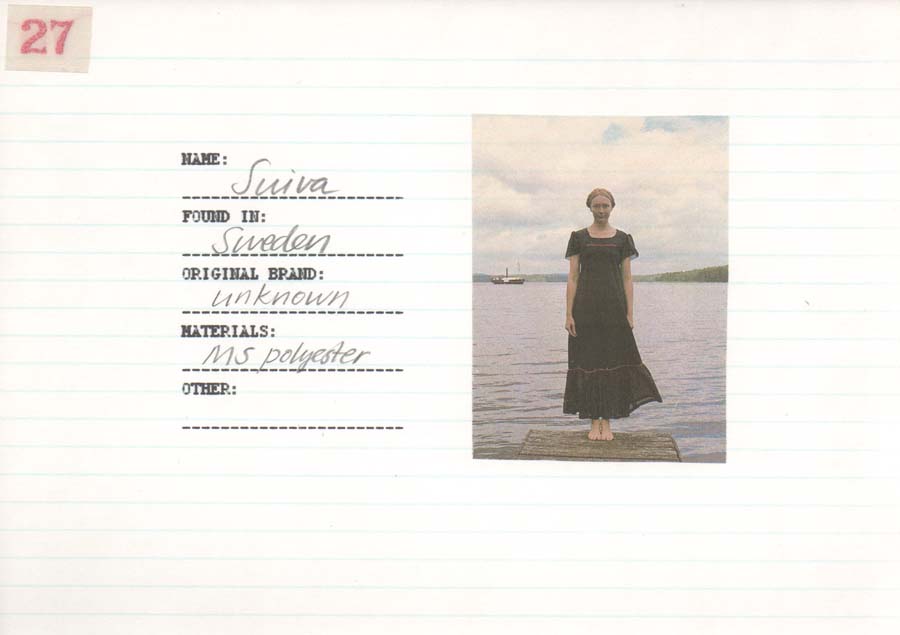 27
NAME:
Suiva
FOUND IN:
Sweden
ORIGINAL BRAND:
unknown
MATERIALS:
MS polyester
OTHER: